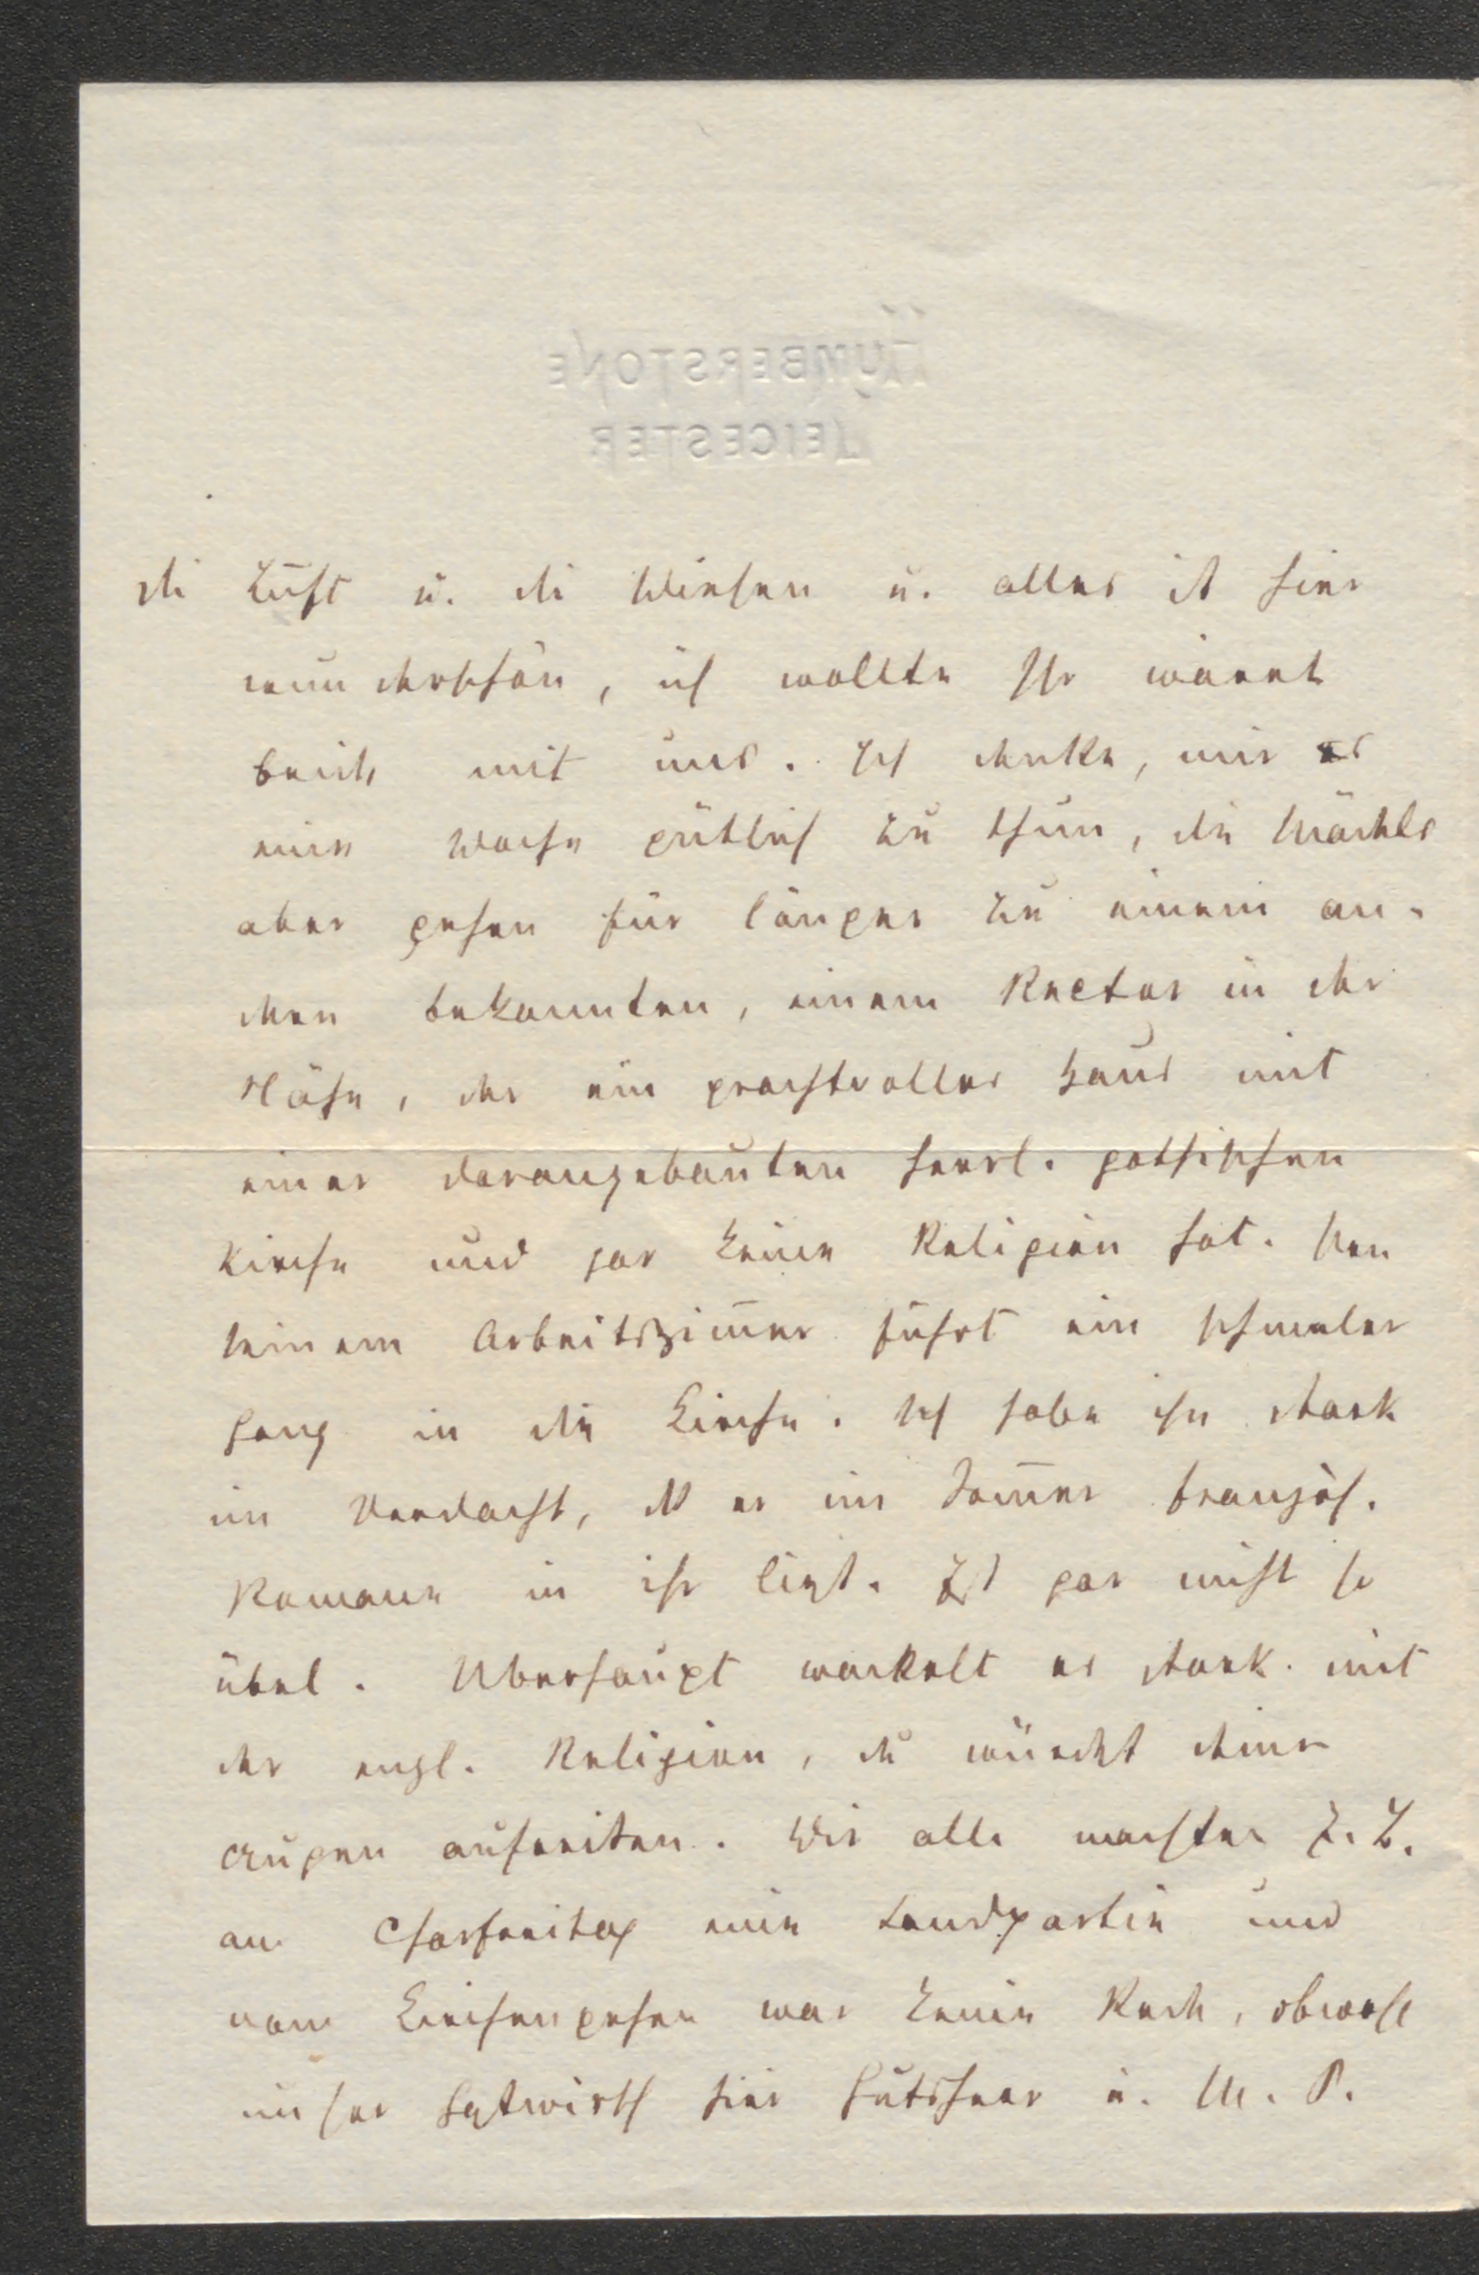 HUMBERSTONE
LEICESTER
die Luft u. die Wiesen u. alles ist hier
wunderschön, ich wollte Ihr wäret
beide mit uns. Ich denke, mir es
eine Woche gütlich zu thun, die Mädels
aber gehen für länger zu einem an-
deren bekannten, einem Rector in der
Nähe, der ein prachtvolles Haus mit
einer darangebauten herrl. gothischen
Kirche und gar keine Religion hat. Von
seinem Arbeitszim̄er führt ein schmaler
Gang in die Kirche. Ich habe ihn stark
im Verdacht, dß er im Som̄er französ.
Romane in ihr liest. Ist gar nicht so
übel. Überhaupt wackelt es stark mit
der engl. Religion, du würdest deine
Augen aufreißen. Wir alle machten z. B.
am Charfreitag eine Landpartie und
vom Kirchengehen war keine Rede, obwohl
unser Gastwirth hier Gutsherr u. M. P.